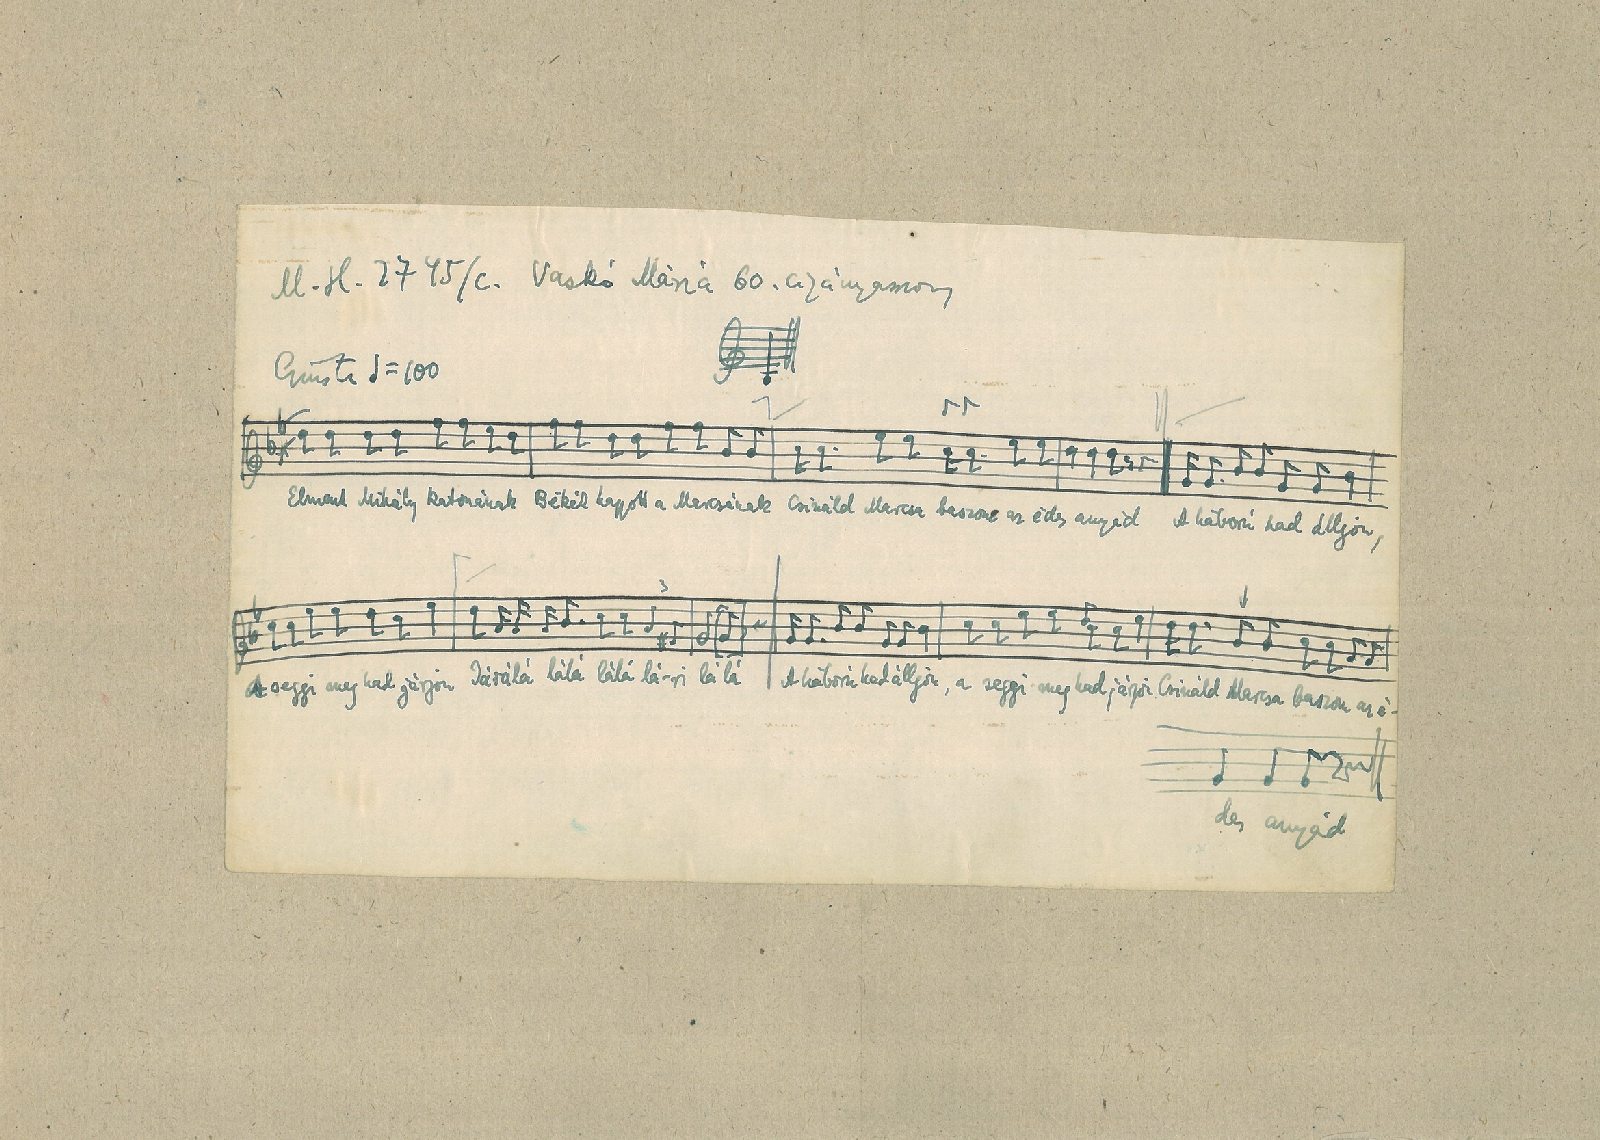 M.H. 2745/c. Vaskó Mária 60. cigányasszony
Giusto ♩=100
Elment Mihály katonának Békét hagyott a Marcsának Csináld Marcsa baszone az édes anyád A háború had álljon,
A seggi meg had járjon Járálá lálá lálá lá-ri lá lá A háború had álljon, a seggi meg had járjon Csináld Marcsa baszom az é-
3
des anyád